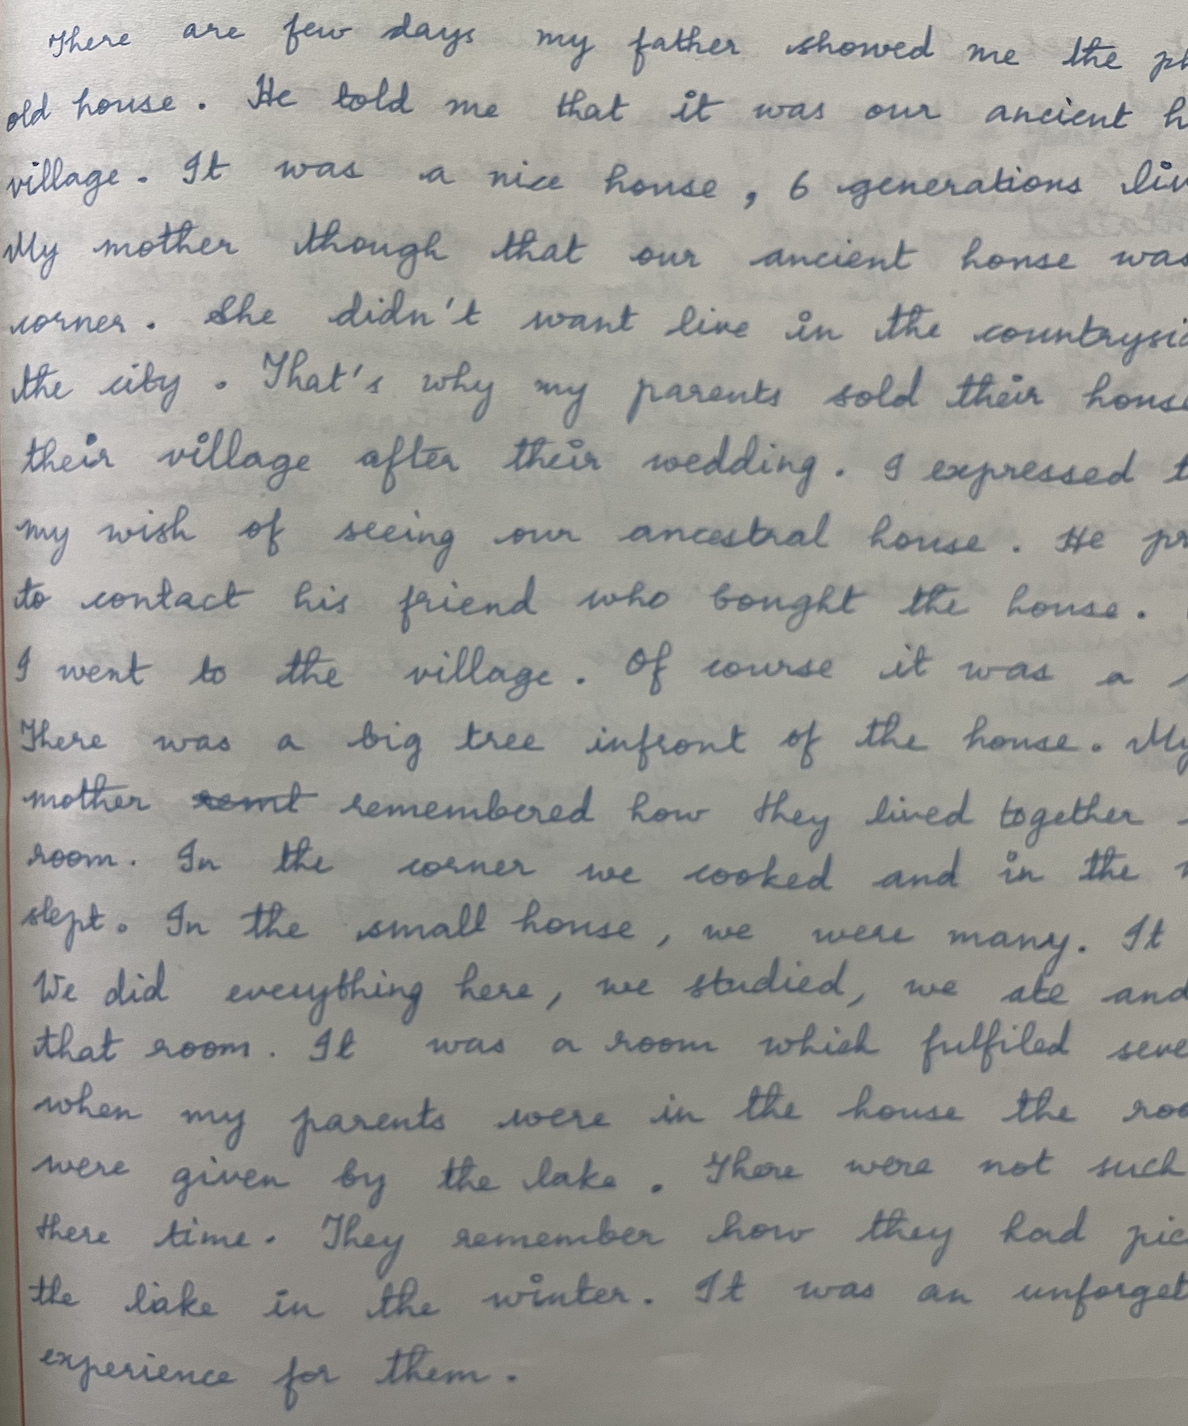 There are few days my father showed me the
old house. He told me that it was our ancient
village. It was a nice house, 6 generations
My mother though that our ancient house was
corner. She didn't want live in the
the city. That's why my parents sold their
their village after their wedding. I expressed
my wish of seeing our ancestral house. He
to contact his friend who bought the house.
I went to the village. Of course it was a
There was a big tree infront of the house. My
mother remembered how they lived together
room. In the corner we cooked and in the
slept. In the small house, we were many. It
We did everything here, we studied, we ate and
that room. It was a room which fulfiled
when my parents were in the house the
were given by the lake. There were not such
there time. They remember how they had
the lake in the winter. It was an
experience for them.